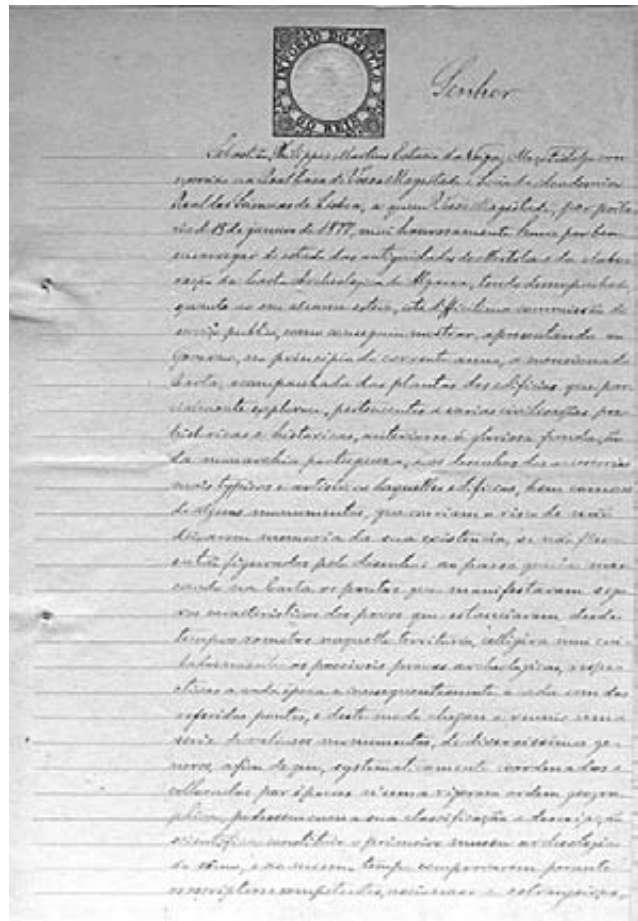 IMPOSTO DO SELLO
DO REIS
Senhor
Sebastião Philippes Martins Estacio da Veiga, Moço Fidalgo com
exercicio na Real Casa de Vossa Magestade e Socio da Academia
Real das Sciencias de Lisboa, a quem Vossa Magestade, por porta
ria de 15 de janeiro de 1877, mui honrosamente houve por bem
encarregar do estudo das antiguidades de Mertola e da elabo
ração da Carta Archeologica do Algarve, tendo desempenhado,
quanto ao seu alcance esteve, esta difficilima commissão de
serviço publico, como conseguiu mostrar, apresentando ao
Governo, no principio do corrente anno, a mencionada
Carta, acompanhada das plantas dos edificios que par
cialmente explorou, pertencentes a varias civilisações pre
historicas e historicas, anteriores á gloriosa fundação
da monarchia portugueza, e os desenhos dos accessorios
mais typicos e artisticos daquelles edificios, bem como os
de alguns monumentos, que corriam o risco de não
deixarem memoria da sua existencia, se não fossem
então figurados pelo desenho: ao passo que ia mar
cando na Carta os pontos que manifestavam segu
ros caracteristicos dos povos que estanciaram desde
tempos remotos naquelle territorio, colligira mui
as possiveis provas archeologicas, respe
ctivas a cada época e consequentemente a cada um dos
referidos pontos, e deste modo chegou a reunir uma
serie de valiosos monumentos, de diversissimos ge
neros, afim de que, systematicamente coordenados e
collocados por épocas n'uma rigorosa ordem geogra
phica, podessem com a sua classificação e descripção
scientifica constituir o primeiro museu archeologico
do reino, e ao mesmo tempo comprovarem perante
os escriptores competentes, nacionaes e estrangeiros,